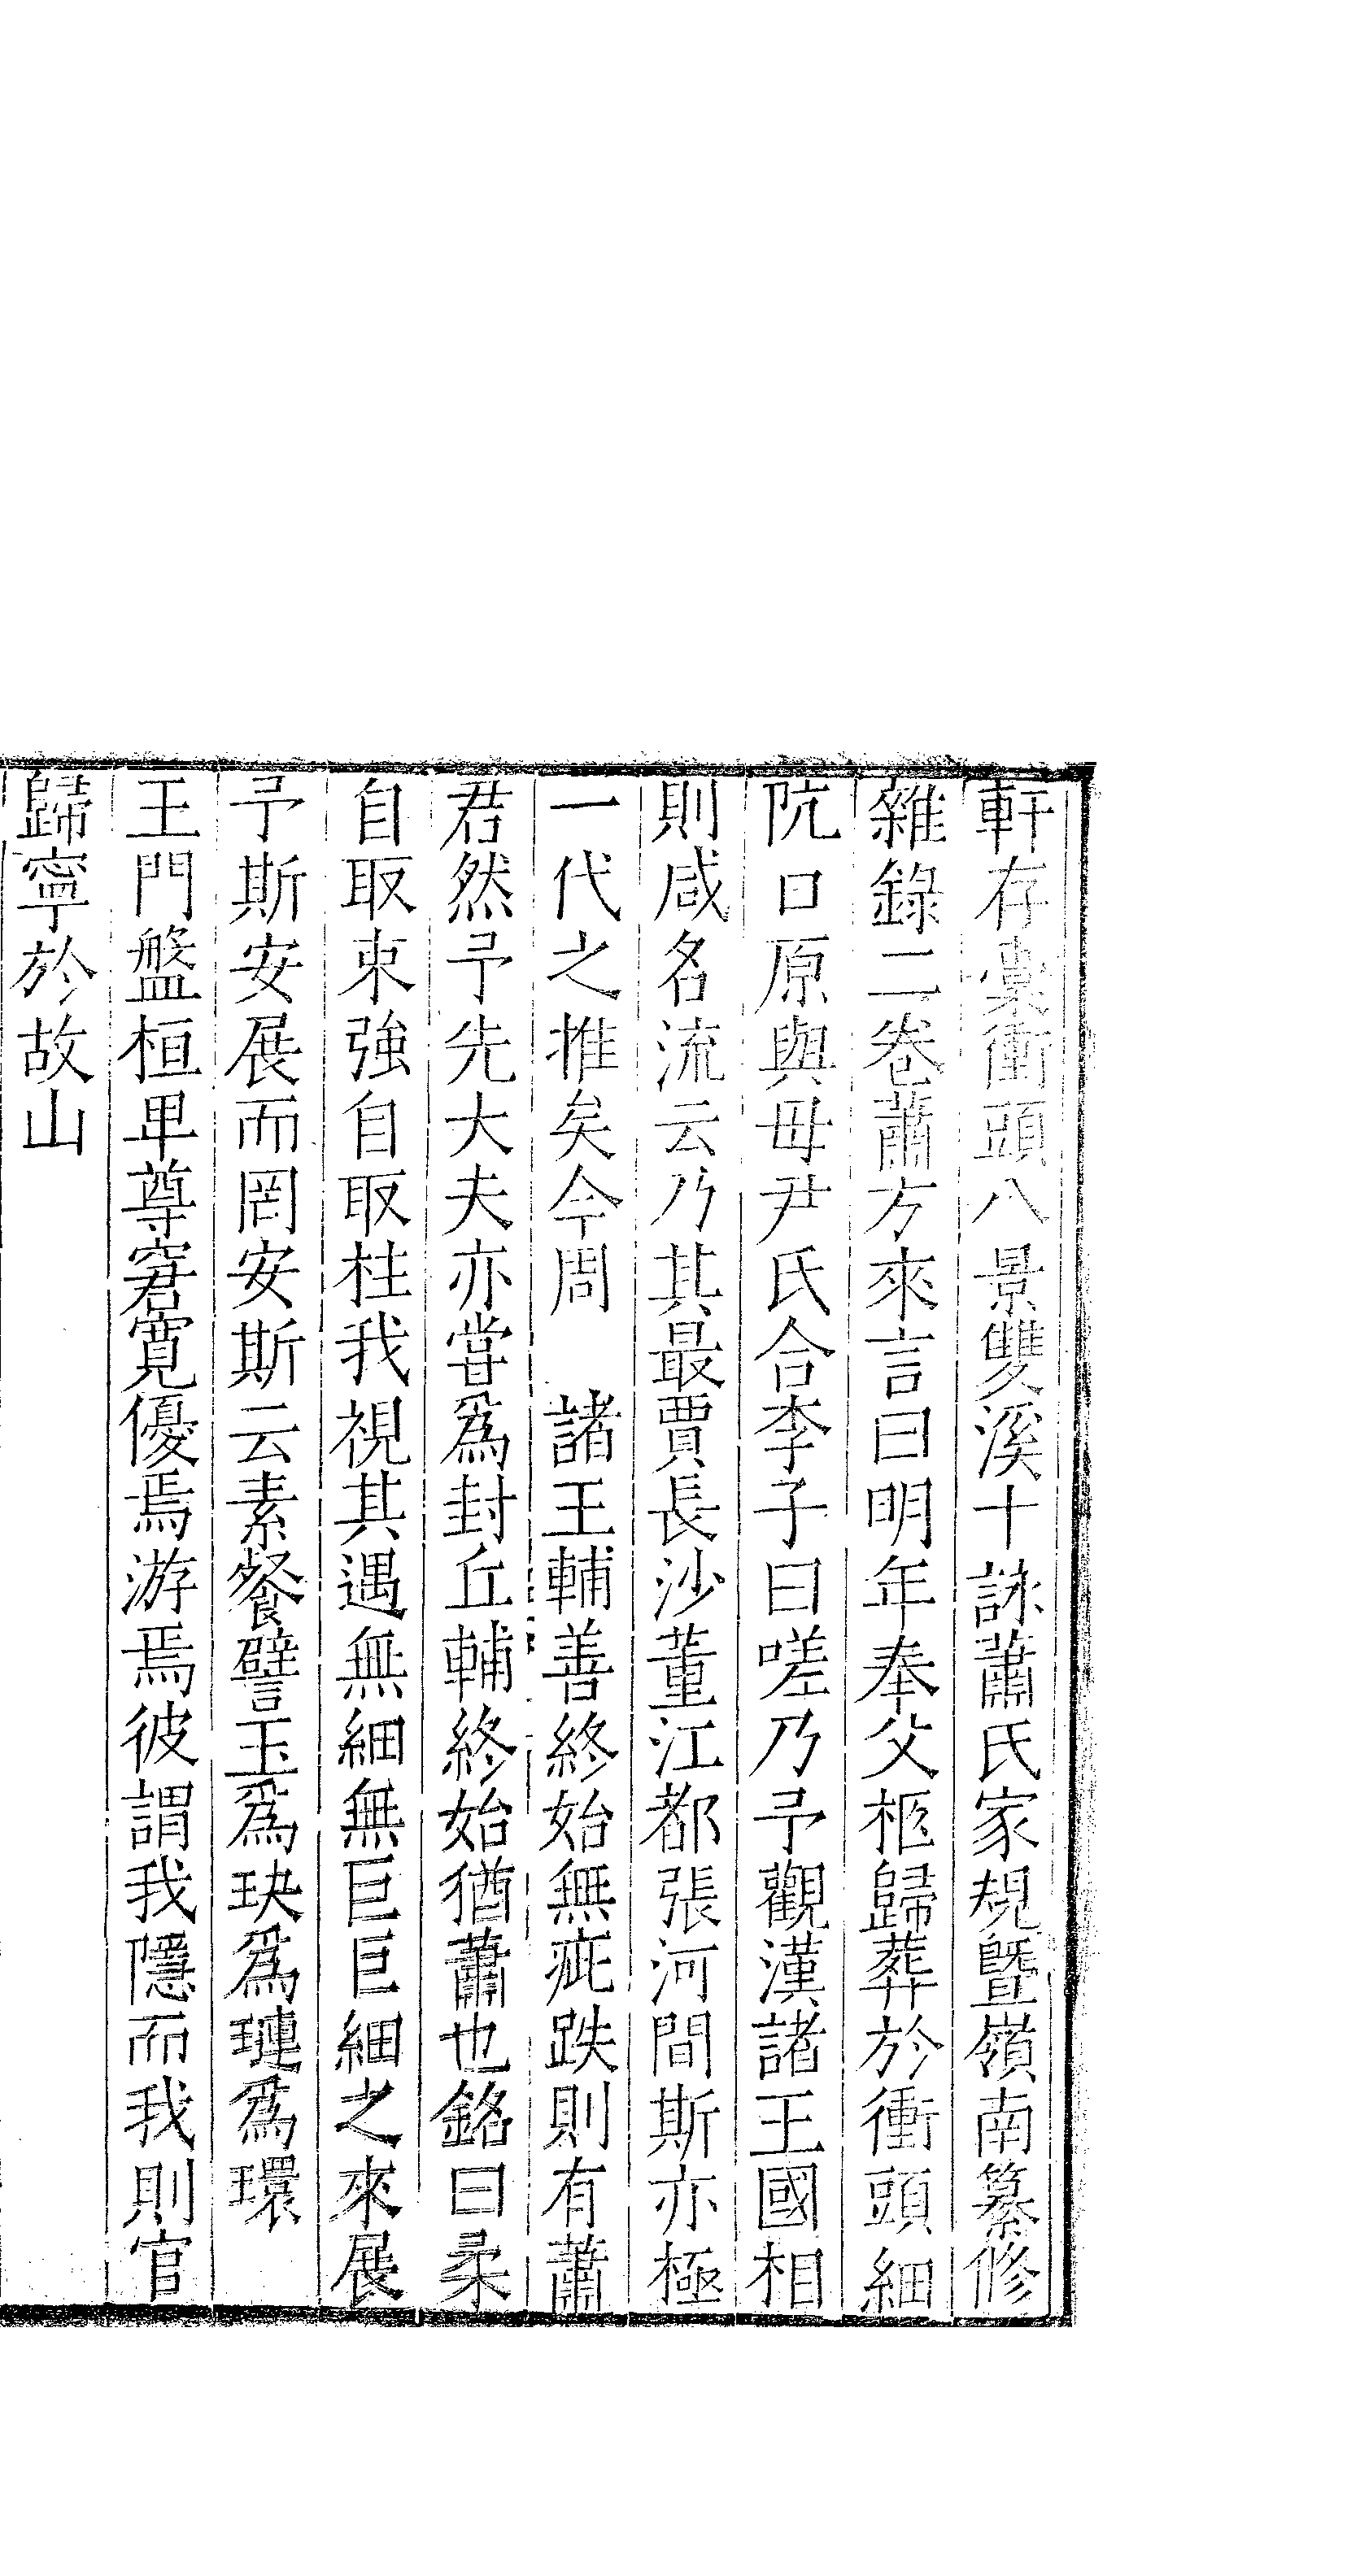 軒存稾衝頭八景雙溪十詠蕭氏家規曁嶺南纂修
雜錄二卷蕭方來言曰明年奉父柩歸葬於衝頭細
阬口原與毋尹氏合李子曰嗟乃予觀漢諸王國相
則咸名流云乃其最賈長沙董江都張河間斯亦極
一代之推矣今周　諸王輔善終始無疵跌則有蕭
君然予先大夫亦嘗爲封丘輔終始猶蕭也銘曰柔
自取束強自取柱我視其遇無細無巨巨細之來展
予斯安展而罔安斯云素餐譬玉爲玦爲璉爲環
王門盤桓卑尊窘寬優焉游焉彼謂我隱而我則官
歸寧於故山